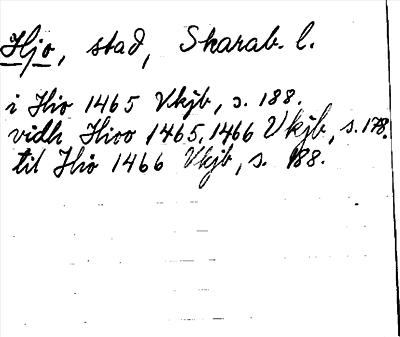 Hjo, stad, Skarab. l.
i Hio 1465 Vkjb, s. 188.
vidh Hioo 1465, 1466 Vkjb, s. 178.
til Hio 1466 Vkjb, s. 188.